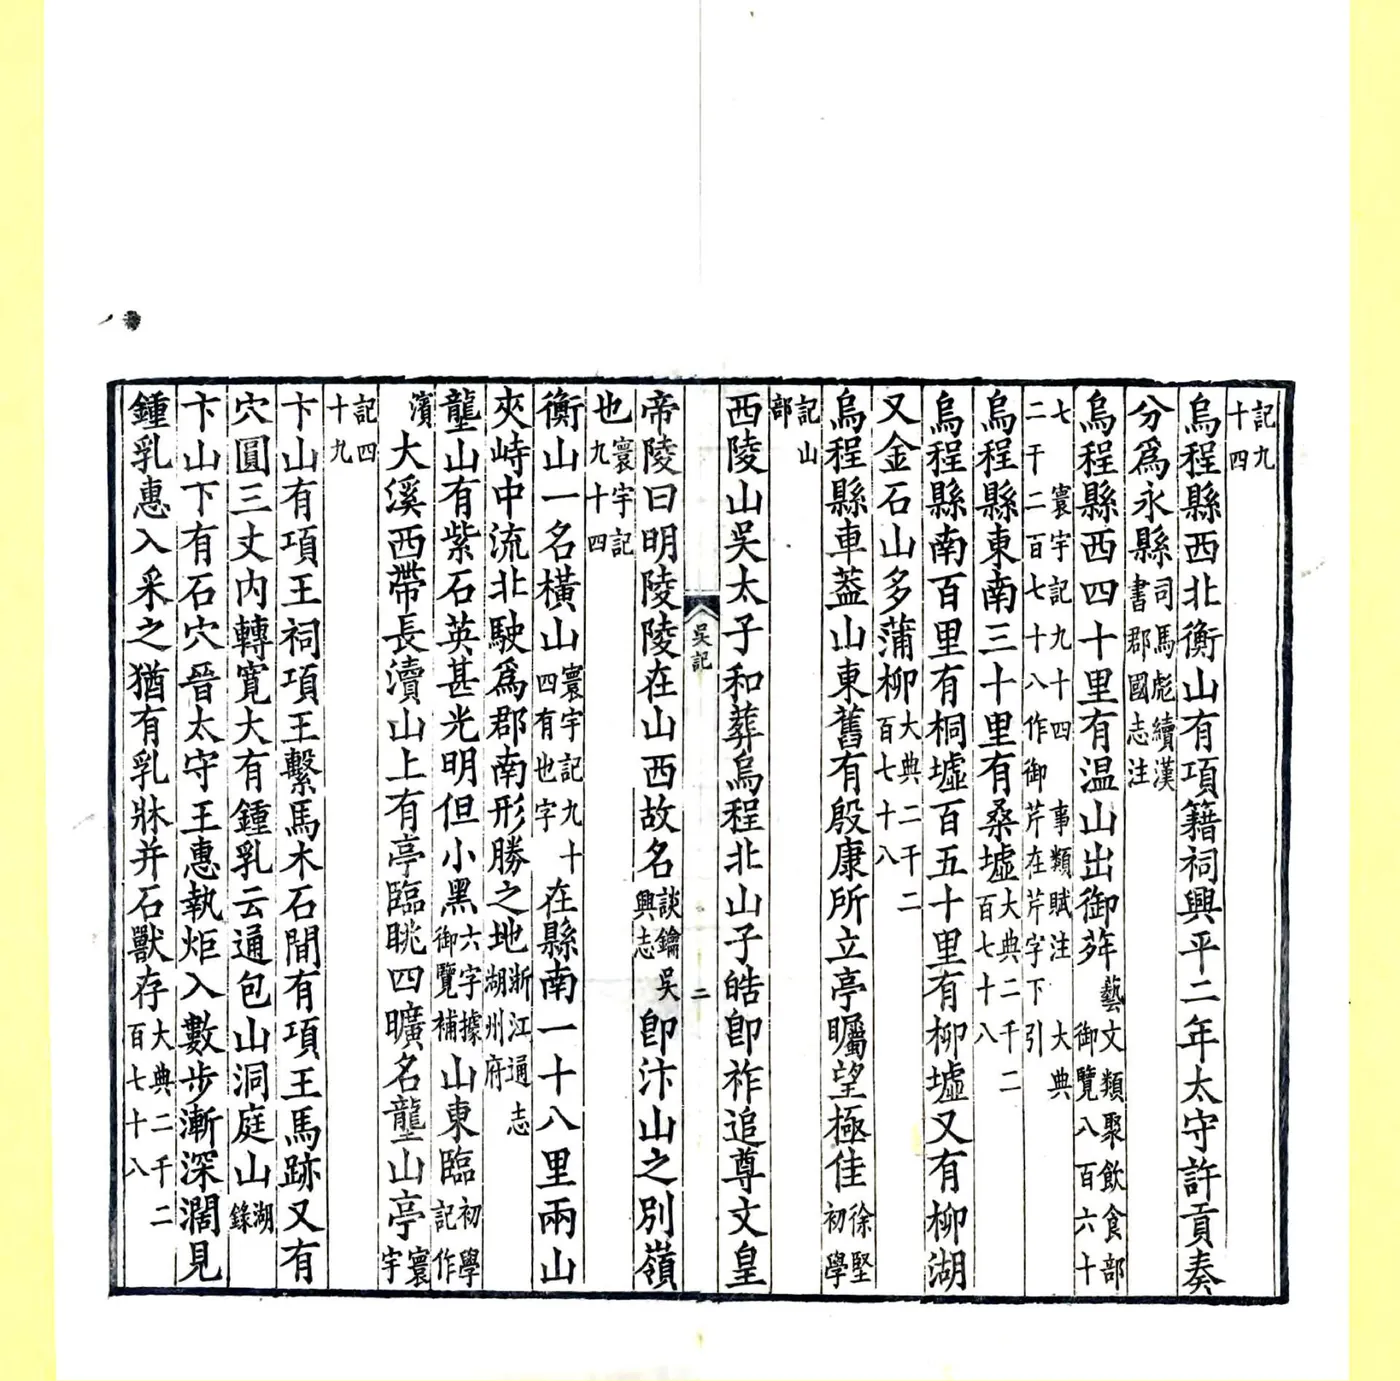 記九
十四
烏程縣西北衡山有項籍祠興平二年太守許貢奏
分爲永縣司馬彪續漢
書郡國志注
烏程縣西四十里有温山出御荈藝文類聚飲食部
御覽八百六十
七 寰宇記九十四 事類賦注 大典
二千二百七十八作御芹在芹字下引
烏程縣東南三十里有桑墟大典二千二
百七十八
烏程縣南百里有桐墟百五十里有柳墟又有柳湖
又金石山多蒲柳大典二千二
百七十八
烏程縣車蓋山東舊有殷康所立亭矚望極佳徐堅
初學
記山
部
西陵山吳太子和葬烏程北山子皓卽祚追尊文皇
吳記 二
帝陵曰明陵陵在山西故名談鑰吳
興志 卽汴山之別嶺
也寰宇記
九十四
衡山一名橫山寰宇記九十
四有也字 在縣南一十八里兩山
夾峙中流北駛爲郡南形勝之地浙江通志
湖州府
壟山有紫石英甚光明但小黑六字據
御覽補 山東臨初學
記作
濱 大溪西帶長瀆山上有亭臨眺四曠名壟山亭寰
宇
記四
十九
卞山有項王祠項王繫馬木石間有項王馬跡又有
穴圓三丈內轉寬大有鍾乳云通包山洞庭山湖
錄
卞山下有石穴晉太守王惠執炬入數步漸深濶見
鍾乳惠入采之猶有乳牀并石獸存大典二千二
百七十八